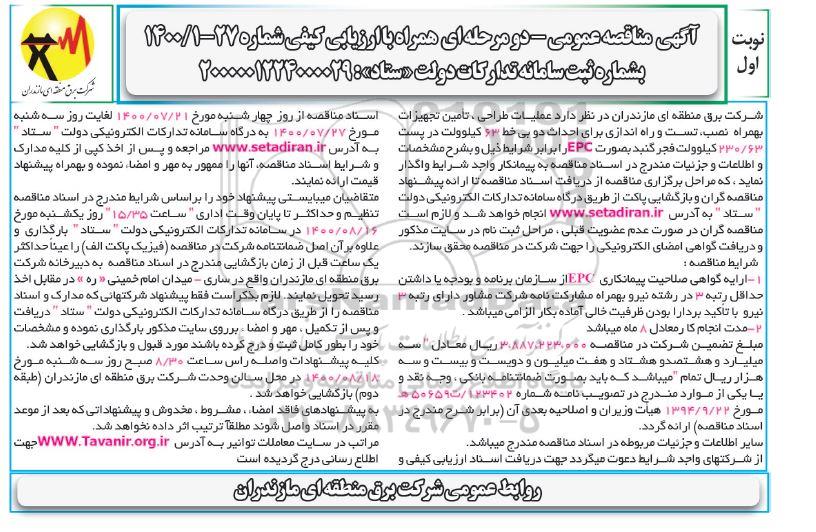 نوبت
اول
آگهی مناقصه عمومی - دو مرحله ای همراه با ارزیابی کیفی شماره ۲۷-۱۴۰۰/۱
بشماره ثبت سامانه تدارکات دولت «ستاد»: ۲۰۰۰۰۰۱۲۲۴۰۰۰۰۲۹
شرکت برق منطقه ای مازندران
شرکت برق منطقه ای مازندران در نظر دارد عملیات طراحی ، تأمین تجهیزات
بهمراه نصب، تست و راه اندازی برای احداث دو بی خط ۶۳ کیلوولت در پست
۲۳۰/۶۳ کیلوولت فجر گنبد بصورت EPC را برابر شرایط ذیل و بشرح مشخصات
و اطلاعات و جزئیات مندرج در اسناد مناقصه به پیمانکار واجد شرایط واگذار
نماید ، که مراحل برگزاری مناقصه از دریافت اسناد مناقصه تا ارائه پیشنهاد
مناقصه گران و بازگشایی پاکت از طریق درگاه سامانه تدارکات الکترونیکی دولت
" ستاد " به آدرس www.setadiran.ir انجام خواهد شد و لازم است
مناقصه گران در صورت عدم عضویت قبلی ، مراحل ثبت نام در سایت مذکور
و دریافت گواهی امضای الکترونیکی را جهت شرکت در مناقصه محقق سازند.
شرایط مناقصه :
۱-ارایه گواهی صلاحیت پیمانکاری EPC از سازمان برنامه و بودجه یا داشتن
حداقل رتبه ۳ در رشته نیرو بهمراه مشارکت نامه شرکت مشاور دارای رتبه ۳
نیرو با تأکید بردارا بودن ظرفیت خالی آماده بکار الزامی میباشد .
۲-مدت انجام کار معادل ۸ ماه میباشد
مبلغ تضمین شرکت در مناقصه ۳.۸۸۷.۲۲۳.۰۰۰ ریال معادل " سه
میلیارد و هشتصدو هشتاد و هفت میلیون و دویست و بیست و سه
هزار ریال تمام "میباشد که باید بصورت ضمانتنامه بانکی ، وجه نقد و
یا یکی از موارد مندرج در تصویب نامه شماره ۱۲۳۴۰۲/ت۵۰۶۵۹ ه
مورخ ۱۳۹۴/۹/۲۲ هیأت وزیران و اصلاحیه بعدی آن (برابر شرح مندرج در
اسناد مناقصه) ارائه گردد.
سایر اطلاعات و جزئیات مربوطه در اسناد مناقصه مندرج میباشد.
از شرکتهای واجد شرایط دعوت میگردد جهت دریافت اسناد ارزیابی کیفی و
اسناد مناقصه از روز چهار شنبه مورخ ۱۴۰۰/۰۷/۲۱ لغایت روز سه شنبه
مورخ ۱۴۰۰/۰۷/۲۷ به درگاه سامانه تدارکات الکترونیکی دولت " ستاد "
به آدرس www.setadiran.ir مراجعه و پس از اخذ کپی از کلیه مدارک
و شرایط اسناد مناقصه، آنها را ممهور به مهر و امضاء نموده و بهمراه پیشنهاد
قیمت ارائه نمایند.
متقاضیان میبایستی پیشنهاد خود را براساس شرایط مندرج در اسناد مناقصه
تنظیم و حداکثر تا پایان وقت اداری " ساعت ۱۵/۳۵" روز یکشنبه مورخ
۱۴۰۰/۰۸/۱۶ در سامانه تدارکات الکترونیکی دولت " ستاد " بارگذاری و
علاوه بر آن اصل ضمانتنامه شرکت در مناقصه (فیزیک پاکت الف) را عیناً حداکثر
یک ساعت قبل از زمان بازگشایی مندرج در اسناد مناقصه به دبیرخانه شرکت
برق منطقه ای مازندران واقع در ساری - میدان امام خمینی « ره » در مقابل اخذ
رسید تحویل نمایند. لازم بذکر است فقط پیشنهاد شرکتهائی که مدارک و اسناد
مناقصه را از طریق درگاه سامانه تدارکات الکترونیکی دولت " ستاد " دریافت
و پس از تکمیل ، مهر و امضاء برروی سایت مذکور بارگذاری نموده و مشخصات
خود را بطور کامل ثبت و درج کرده باشند مورد قبول و بازگشایی خواهد شد.
کلیه پیشنهادات واصله راس ساعت ۸/۳۰ صبح روز سه شنبه مورخ
۱۴۰۰/۰۸/۱۸ در محل سالن وحدت شرکت برق منطقه ای مازندران (طبقه
دوم) بازگشایی خواهد شد.
به پیشنهادهای فاقد امضاء ، مشروط ، مخدوش و پیشنهاداتی که بعد از موعد
مقرر در اسناد واصل شوند مطلقاً ترتیب اثر داده نخواهد شد.
مراتب در سایت معاملات توانیر به آدرس WWW.Tavanir.org.ir جهت
اطلاع رسانی درج گردیده است
روابط عمومی شرکت برق منطقه ای مازندران